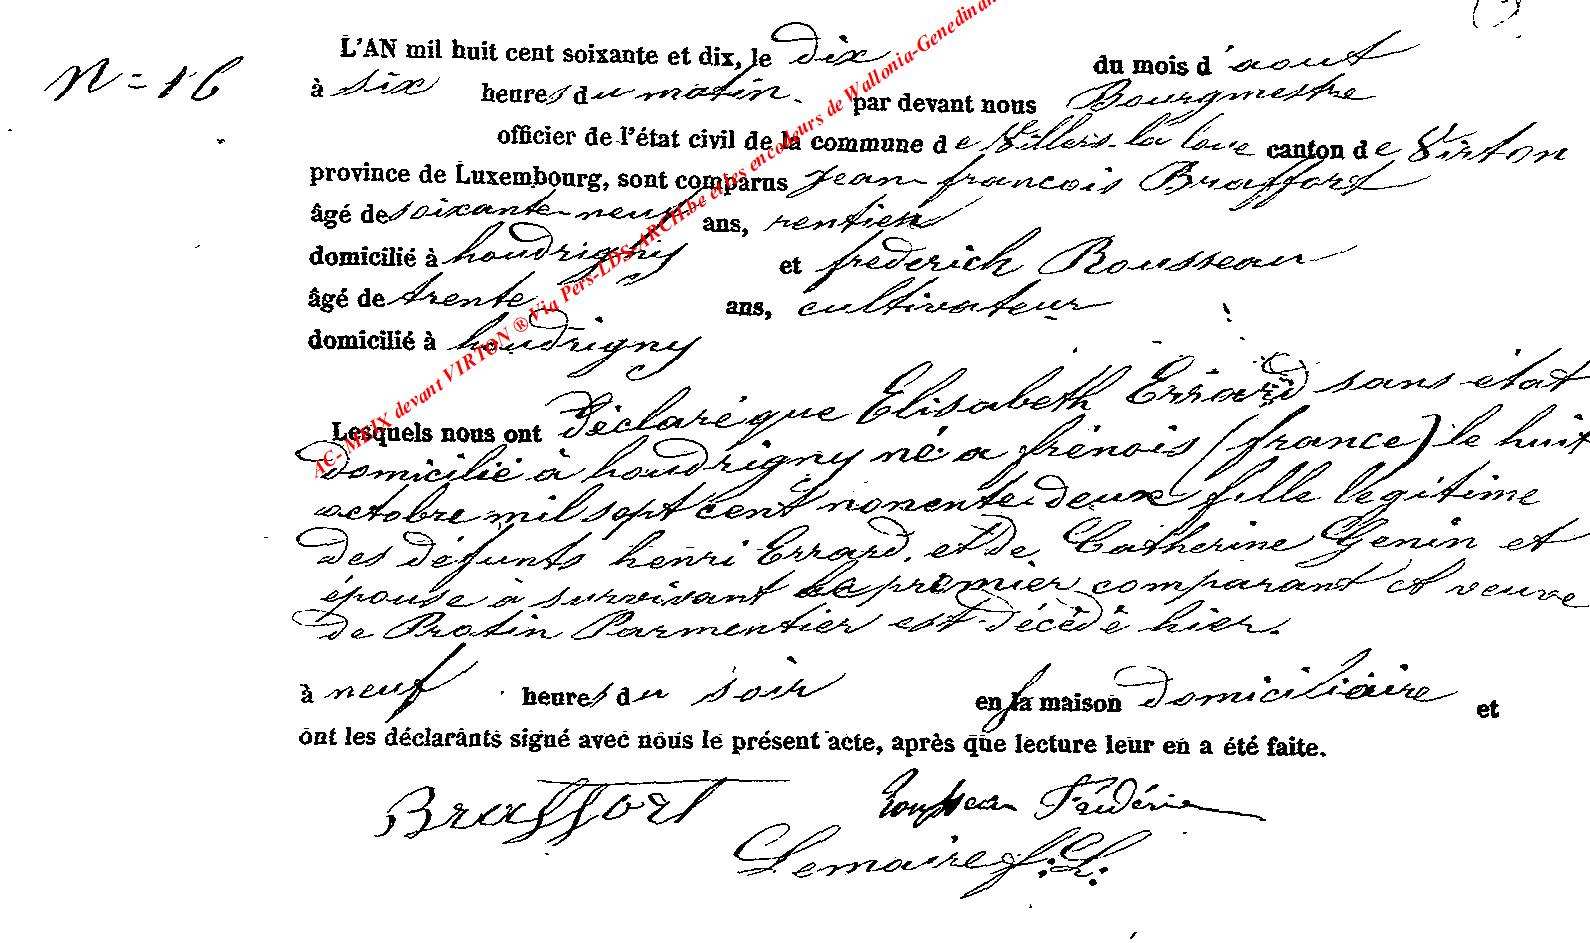 N = 16
L'AN mil huit cent soixante et dix, le dix du mois d'aout
à six heures du matin. par devant nous Bourgmestre
officier de l'état civil de la commune de Villers-la loue canton de Virton
province de Luxembourg, sont comparus Jean-francois Braffort
âgé de soixante-neuf ans, rentier
domicilié à houdrigny et frederich Rousseau
âgé de trente ans, cultivateur
domicilié à houdrigny
Lesquels nous ont déclaré que Elisabeth Errard sans état
domicilié à houdrigny né a frénois (france) le huit
octobre mil sept cent nonente-deux fille legitime
des défunts henri Errard, et de Catherine Genin et
épouse à survivant le premier comparant et veuve
de Protin Parmentier est décédé hier.
à neuf heures du soir en la maison domiciliaire et
ont les déclarants signé avec nous le présent acte, après que lecture leur en a été faite.
Braffort Rousseau Frédéric
Lemaire f:L:
AC- MEIX devant VIRTON ® Via Pers-LDS-ARCH.be et les encodeurs de Wallonia-Genedinan